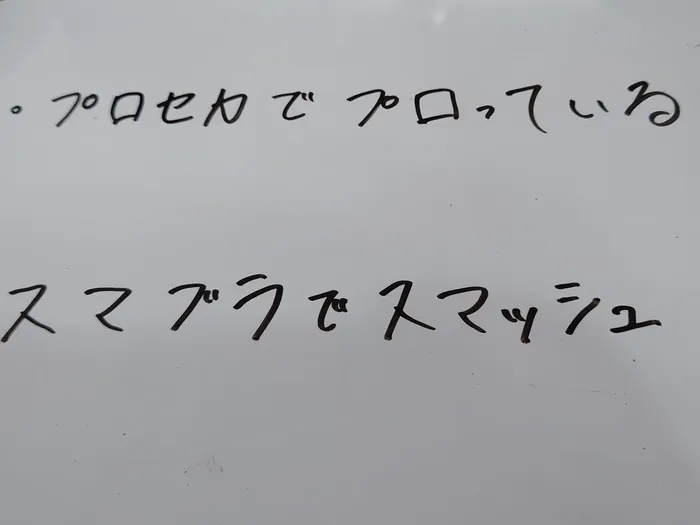 ・プロセカでプロっている
スマブラでスマッシュ